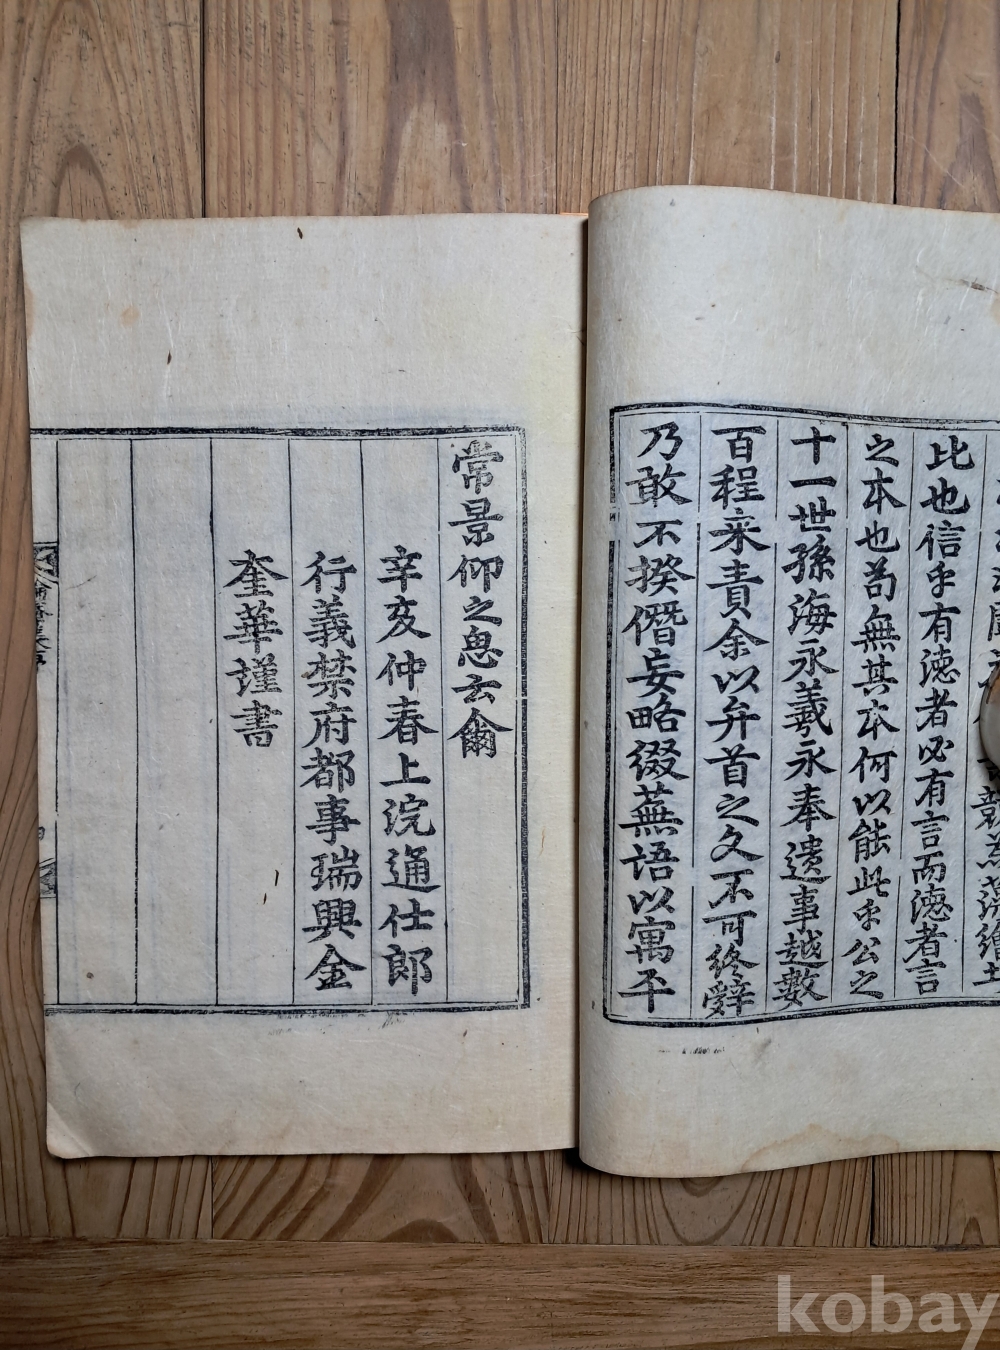 比也信乎有德者必有言而德者言
之本也苟無其本何以能此乎公之
十一世孫海永羲永奉遺事越數
百程来責余以弁首之文不可終辭
乃敢不揆僭妄略綴蕪語以寓平
常景仰之思云爾
辛亥仲春上浣通仕郎
行義禁府都事瑞興金
奎華謹書
kobay